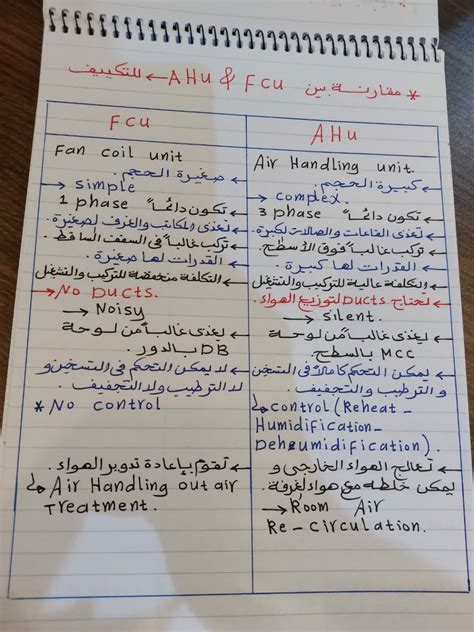 * مقارنة بين AHU & FCU ← للتكييف
FCU
Fan coil unit
← صغيرة الحجم.
→ simple
← تكون دائماً 1 phase
← تغذي المكاتب والغرف الصغيرة.
← تركب غالباً في السقف الساقط.
← القدرات لها صغيرة.
← التكلفة منخفضة للتركيب والتشغيل
→ No Ducts.
→ Noisy
← يغذى غالباً من لوحة
DB بالدور.
← لا يمكن التحكم في التسخين و
لا الترطيب ولا التجفيف.
* No control
← تقوم بإعادة تدوير الهواء.
↳ Air Handling out air
Treatment.
AHU
Air Handling unit.
← كبيرة الحجم.
→ complex.
← تكون دائماً 3 phase
← تغذى القاعات والصالات لكبيرة.
← تركب غالبا فوق الأسطح.
← القدرات لها كبيرة.
← التكلفة عالية للتركيب والتشغيل
← تحتاج Ducts لتوزيع الهواء.
→ silent.
← يغذى غالباً من لوحة
MCC بالسطح.
← يمكن التحكم كاملا في التسخين
و الترطيب والتجفيف.
↳ control (Reheat -
Humidification -
Deheumidification).
← تعالج الهواء الخارجي و
يمكن خلطه مع هواء لغرفة.
→ Room Air
Re - circulation.